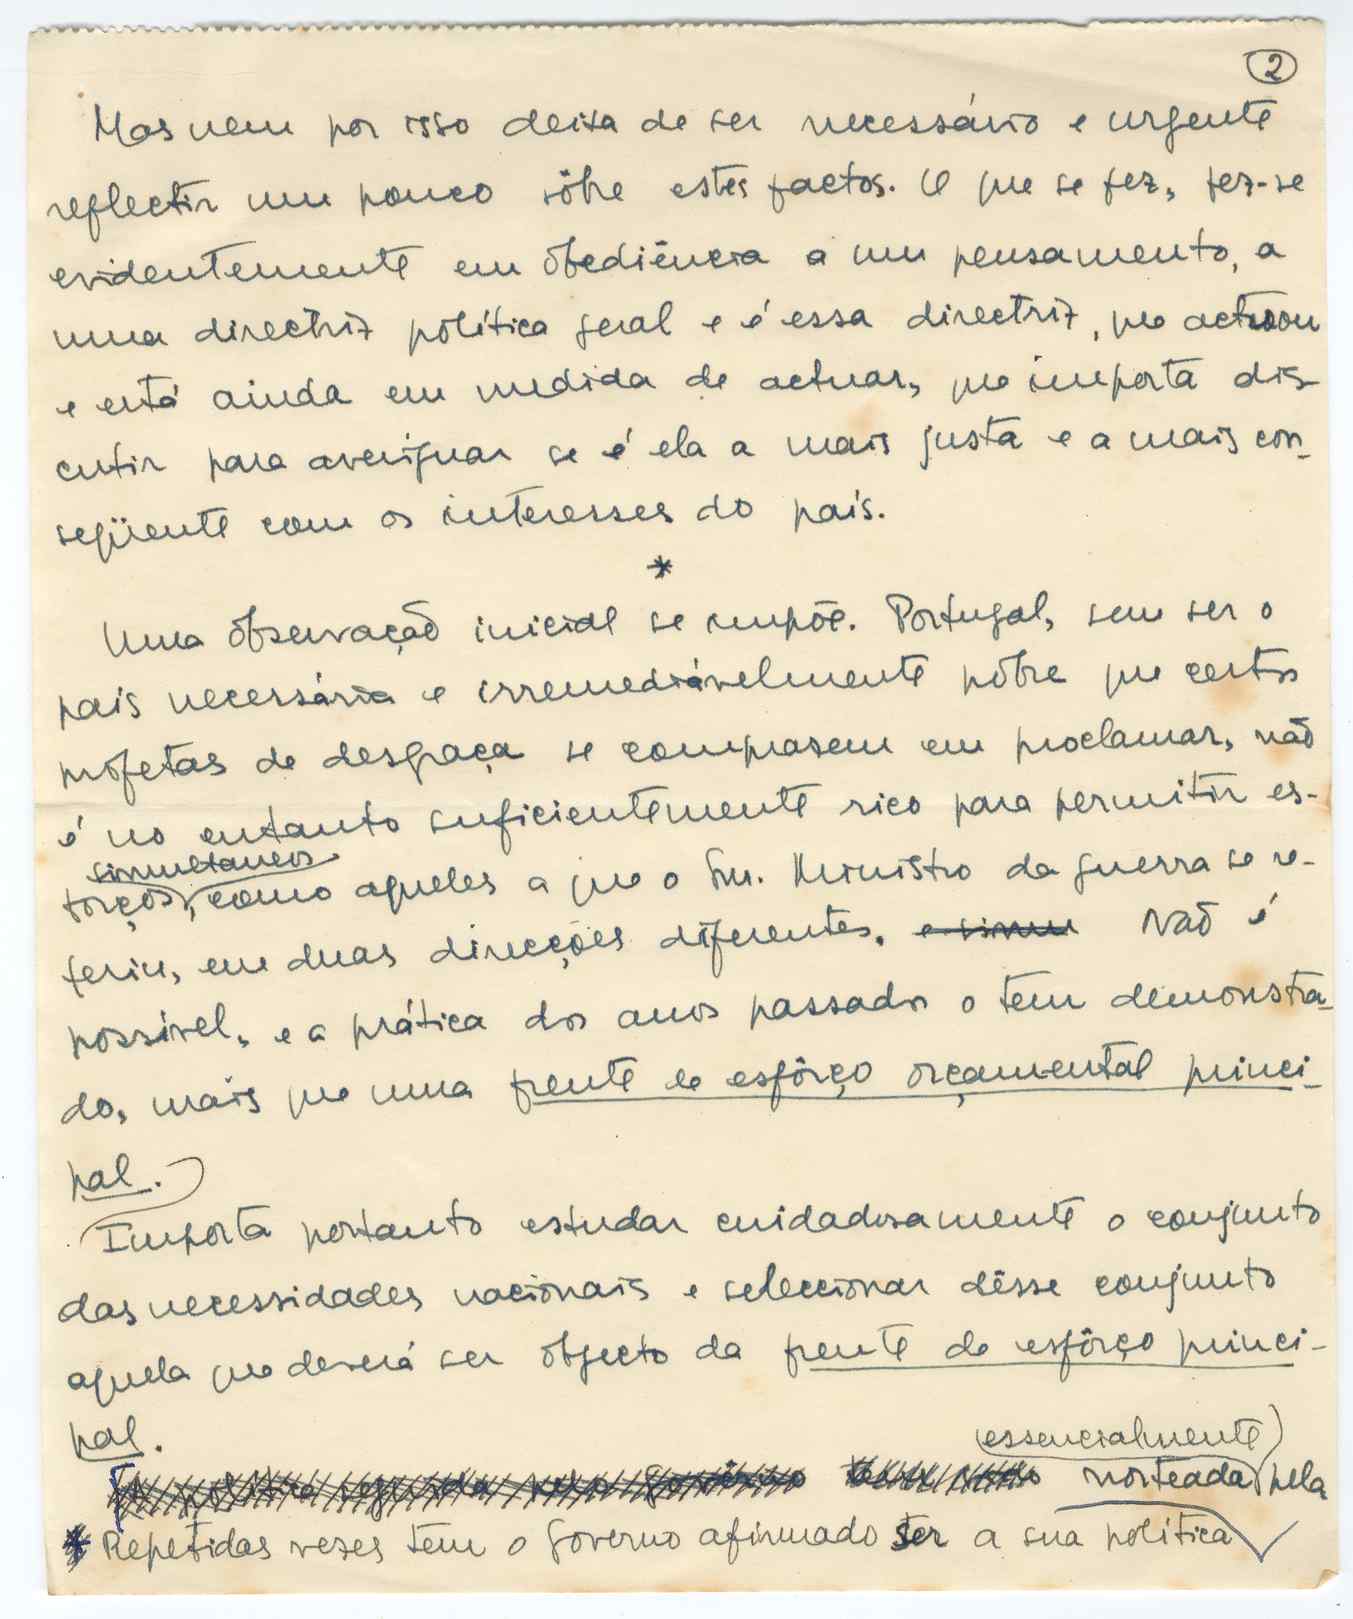 2
Mas nem por isso deixa de ser necessário e urgente
reflectir um pouco sôbre estes factos. O que se fez, fez-se
evidentemente em obediência a um pensamento, a
uma directriz política geral e é essa directriz, que actuou
e está ainda em medida de actuar, que importa dis-
cutir para averiguar se é ela a mais justa e a mais con-
seqüente com os interesses do país.
*
Uma observação inicial se impõe. Portugal, sem ser o
país necessária e irremediávelmente pobre que certos
profetas de desgraça se comprasem em proclamar, não
é no entanto suficientemente rico para permitir es-
simultaneos
forços, como aqueles a que o Snr. Ministro da guerra se re-
feriu, em duas direcções diferentes. e simu Não é
possível, e a prática dos anos passados o tem demonstra-
do, mais que uma frente de esfôrço orçamental princi-
pal.
Importa portanto estudar cuidadosamente o conjunto
das necessidades nacionais e seleccionar dêsse conjunto
aquela que deverá ser objecto da frente de esfôrço princi-
pal.
essencialmente
A política seguida pelo Govêrno norteada pela
* Repetidas vezes tem o Governo afirmado ser a sua política